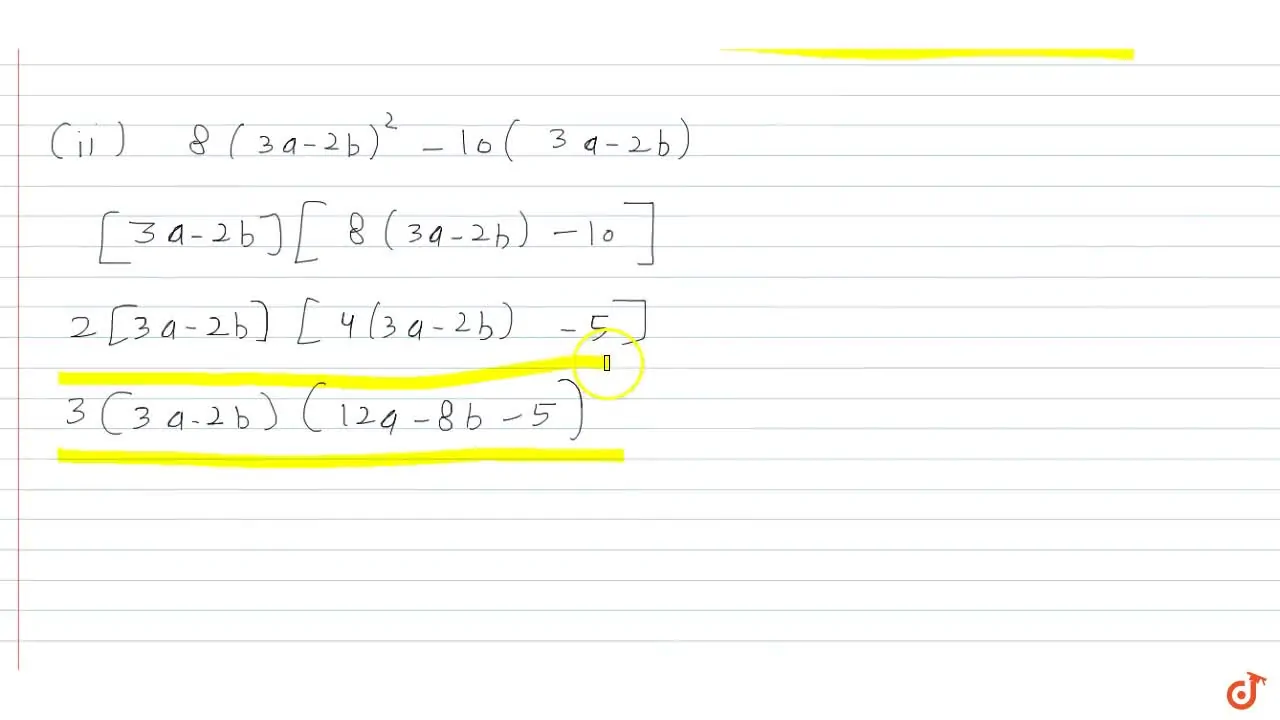 (ii) 8(3a-2b)² - 10(3a-2b)
[3a-2b][8(3a-2b) - 10]
2[3a-2b] [4(3a-2b) - 5]
3(3a-2b)(12a-8b-5)